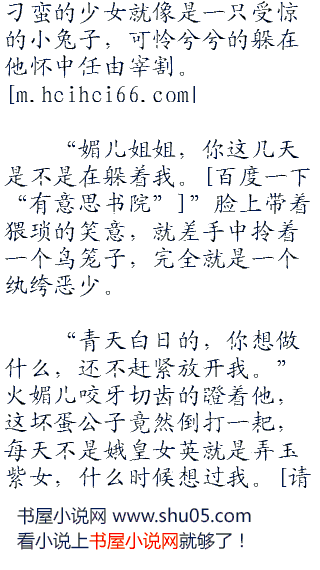 刁蛮的少女就像是一只受惊
的小兔子，可怜兮兮的躲在
他怀中任由宰割。
[m.hcihci66.com]
“媚儿姐姐，你这几天
是不是在躲着我。[百度一下
“有意思书院”]”脸上带着
猥琐的笑意，就差手中拎着
一个鸟笼子，完全就是一个
纨绔恶少。
“青天白日的，你想做
什么，还不赶紧放开我。”
火媚儿咬牙切齿的瞪着他，
这坏蛋公子竟然倒打一耙，
每天不是娥皇女英就是弄玉
紫女，什么时候想过我。[请
书屋小说网 www.shu05.com
看小说上书屋小说网就够了！